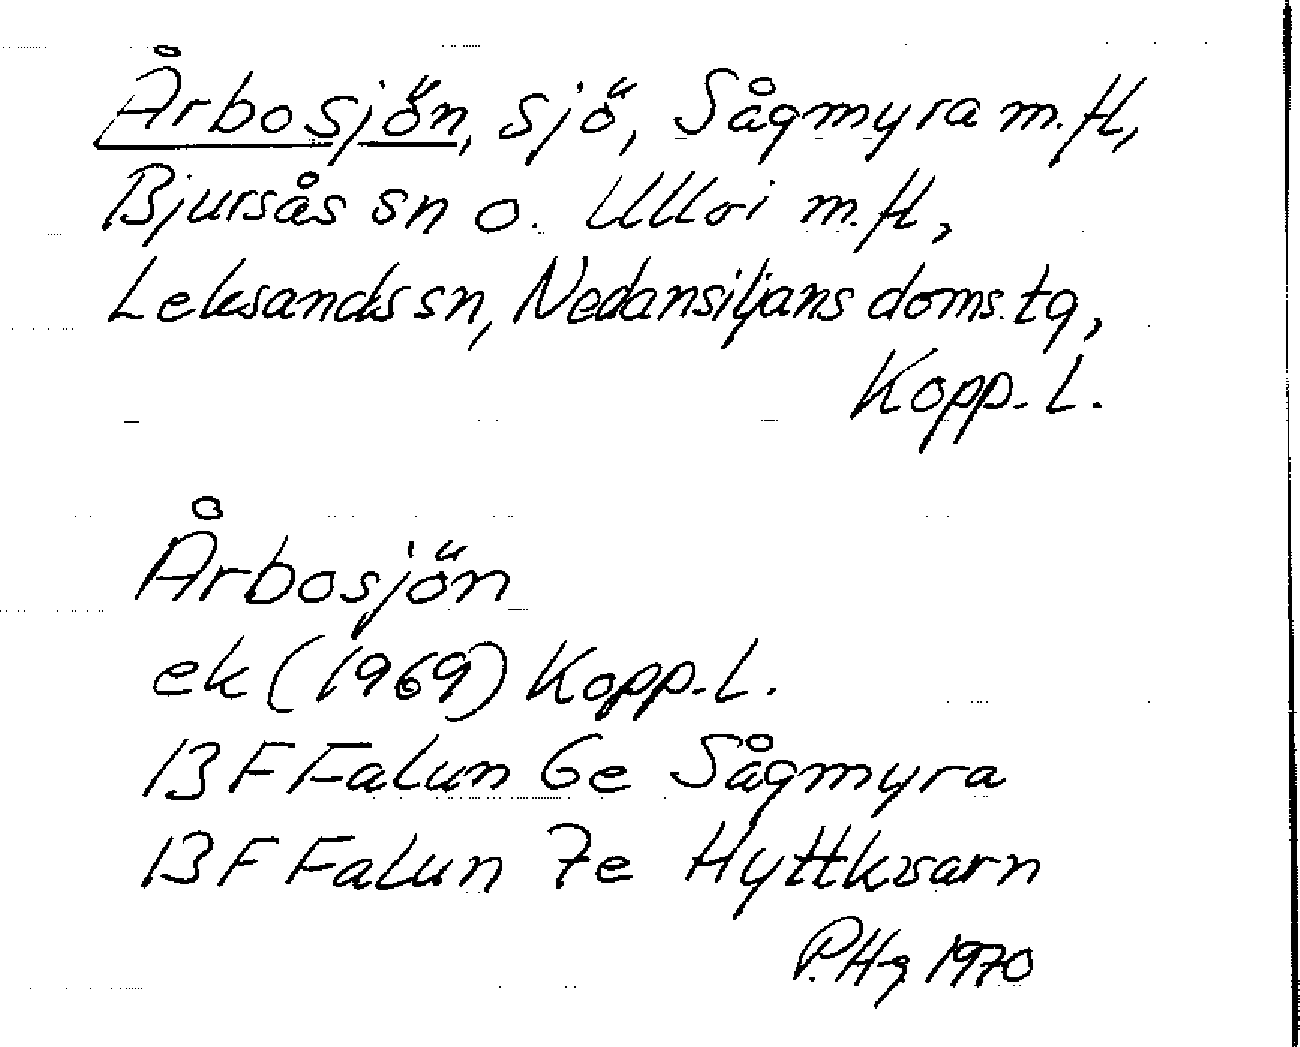 Årbosjön, sjö, Sågmyra m.fl,
Bjursås sn o. Ullvi m.fl,
Leksands sn, Nedansiljans doms.tg,
Kopp. l.
Årbosjön
ek (1969) Kopp. l.
13 F Falun 6e Sågmyra
13 F Falun 7e Hyttkvarn
P.Hg 1970